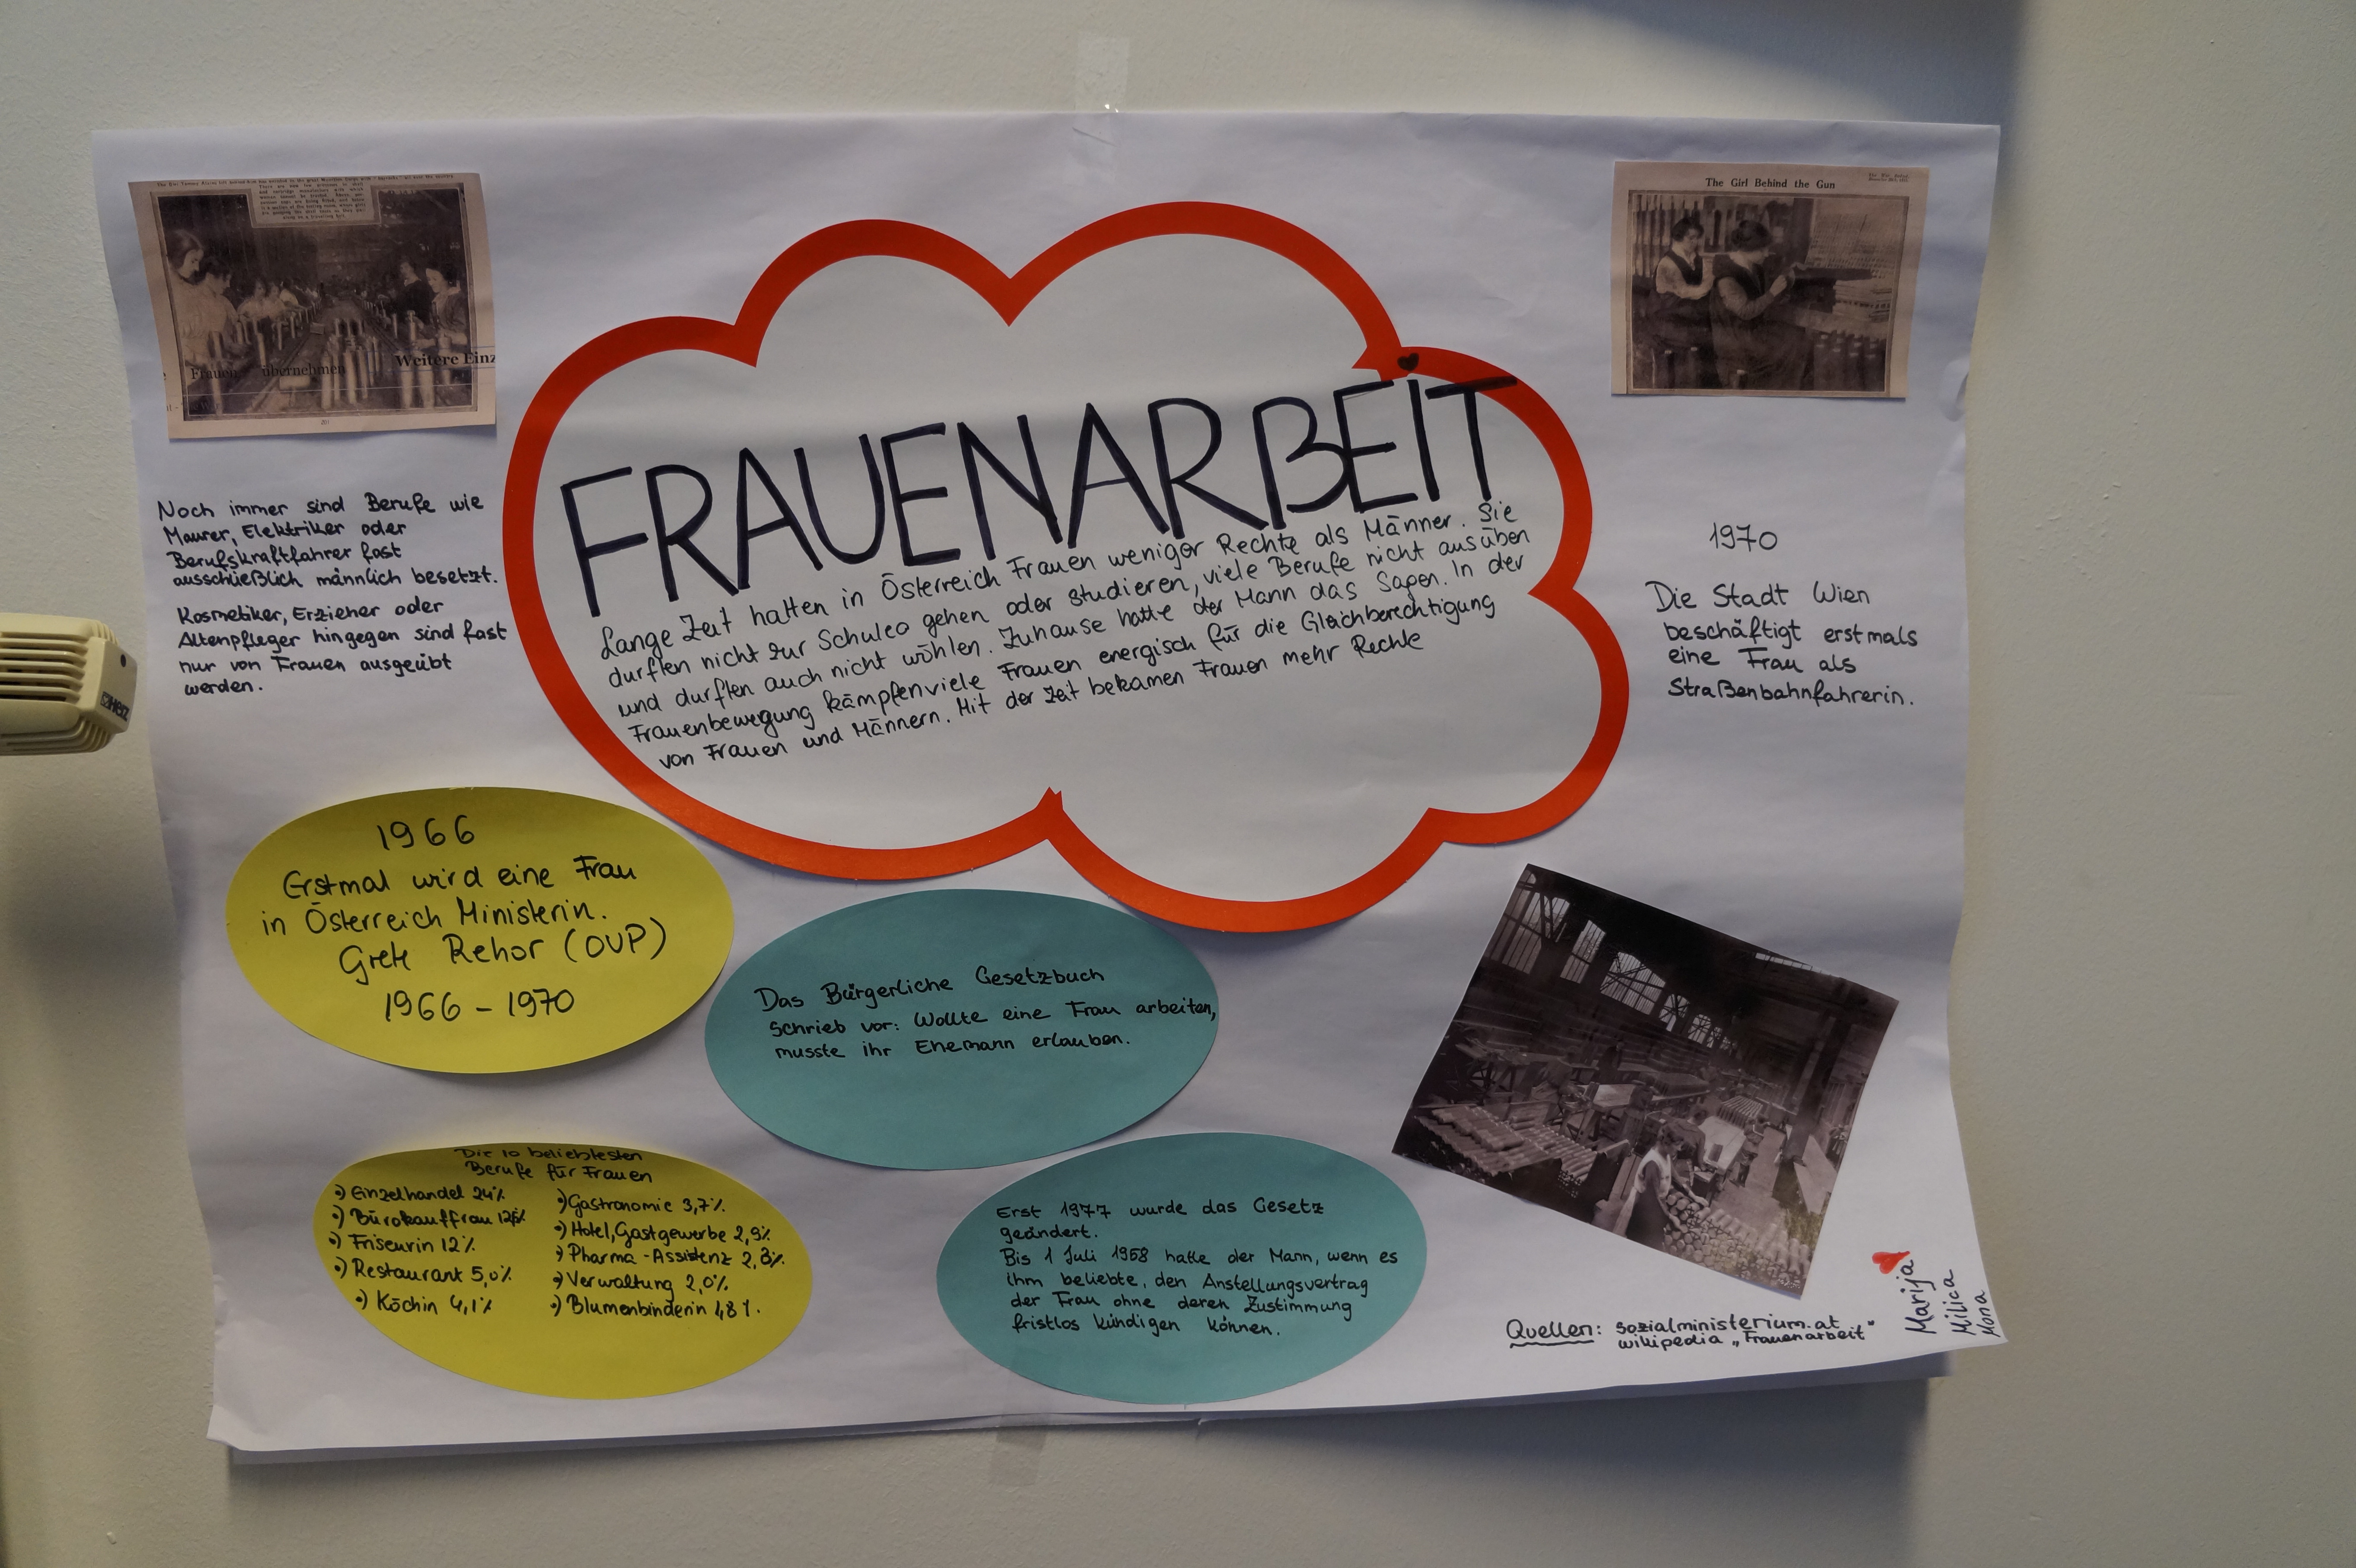 Weitere Einz
Frauen übernehmen
201
The Girl Behind the Gun
FRAUENARBEIT
Lange Zeit hatten in Österreich Frauen weniger Rechte als Männer. Sie
durften nicht zur Schuleo gehen oder studieren, viele Berufe nicht ausüben
und durften auch nicht wöhlen. Zuhause hatte der Mann das Sagen. In der
Frauenbewegung kämpfen viele Frauen energisch für die Gleichberechtigung
von Frauen und Männern. Mit der Zeit bekamen Frauen mehr Rechte
Noch immer sind Berufe wie
Maurer, Elektriker oder
Berufskraftfahrer fast
ausschießlich männlich besetzt.
Kosmetiker, Erzieher oder
Altenpfleger hingegen sind fast
nur von Frauen ausgeübt
werden.
1970
Die Stadt Wien
beschäftigt erstmals
eine Frau als
Straßenbahnfahrerin.
1966
Erstmal wird eine Frau
in Österreich Ministerin.
Grete Rehor (OVP)
1966 - 1970
Das Bürgerliche Gesetzbuch
schrieb vor: Wollte eine Frau arbeiten,
musste ihr Ehemann erlauben.
Die 10 beliebtesten
Berufe für Frauen
•) Einzelhandel 24%
•) Bürokauffrau
•) Friseurin 12%
•) Restaurant 5,0%
•) Köchin 4,1%
•) Gastronomie 3,7%
•) Hotel, Gastgewerbe 2,9%
•) Pharma-Assistenz 2,3%
•) Verwaltung 2,0%
•) Blumenbinderin 1,8%
Erst 1977 wurde das Gesetz
geändert.
Bis 1 Juli 1958 hatte der Mann, wenn es
ihm beliebte, den Anstellungsvertrag
der Frau ohne deren Zustimmung
fristlos kündigen können.
Quellen: sozialministerium.at
wikipedia „Frauenarbeit"
Marija
Milica
Mona
Herz